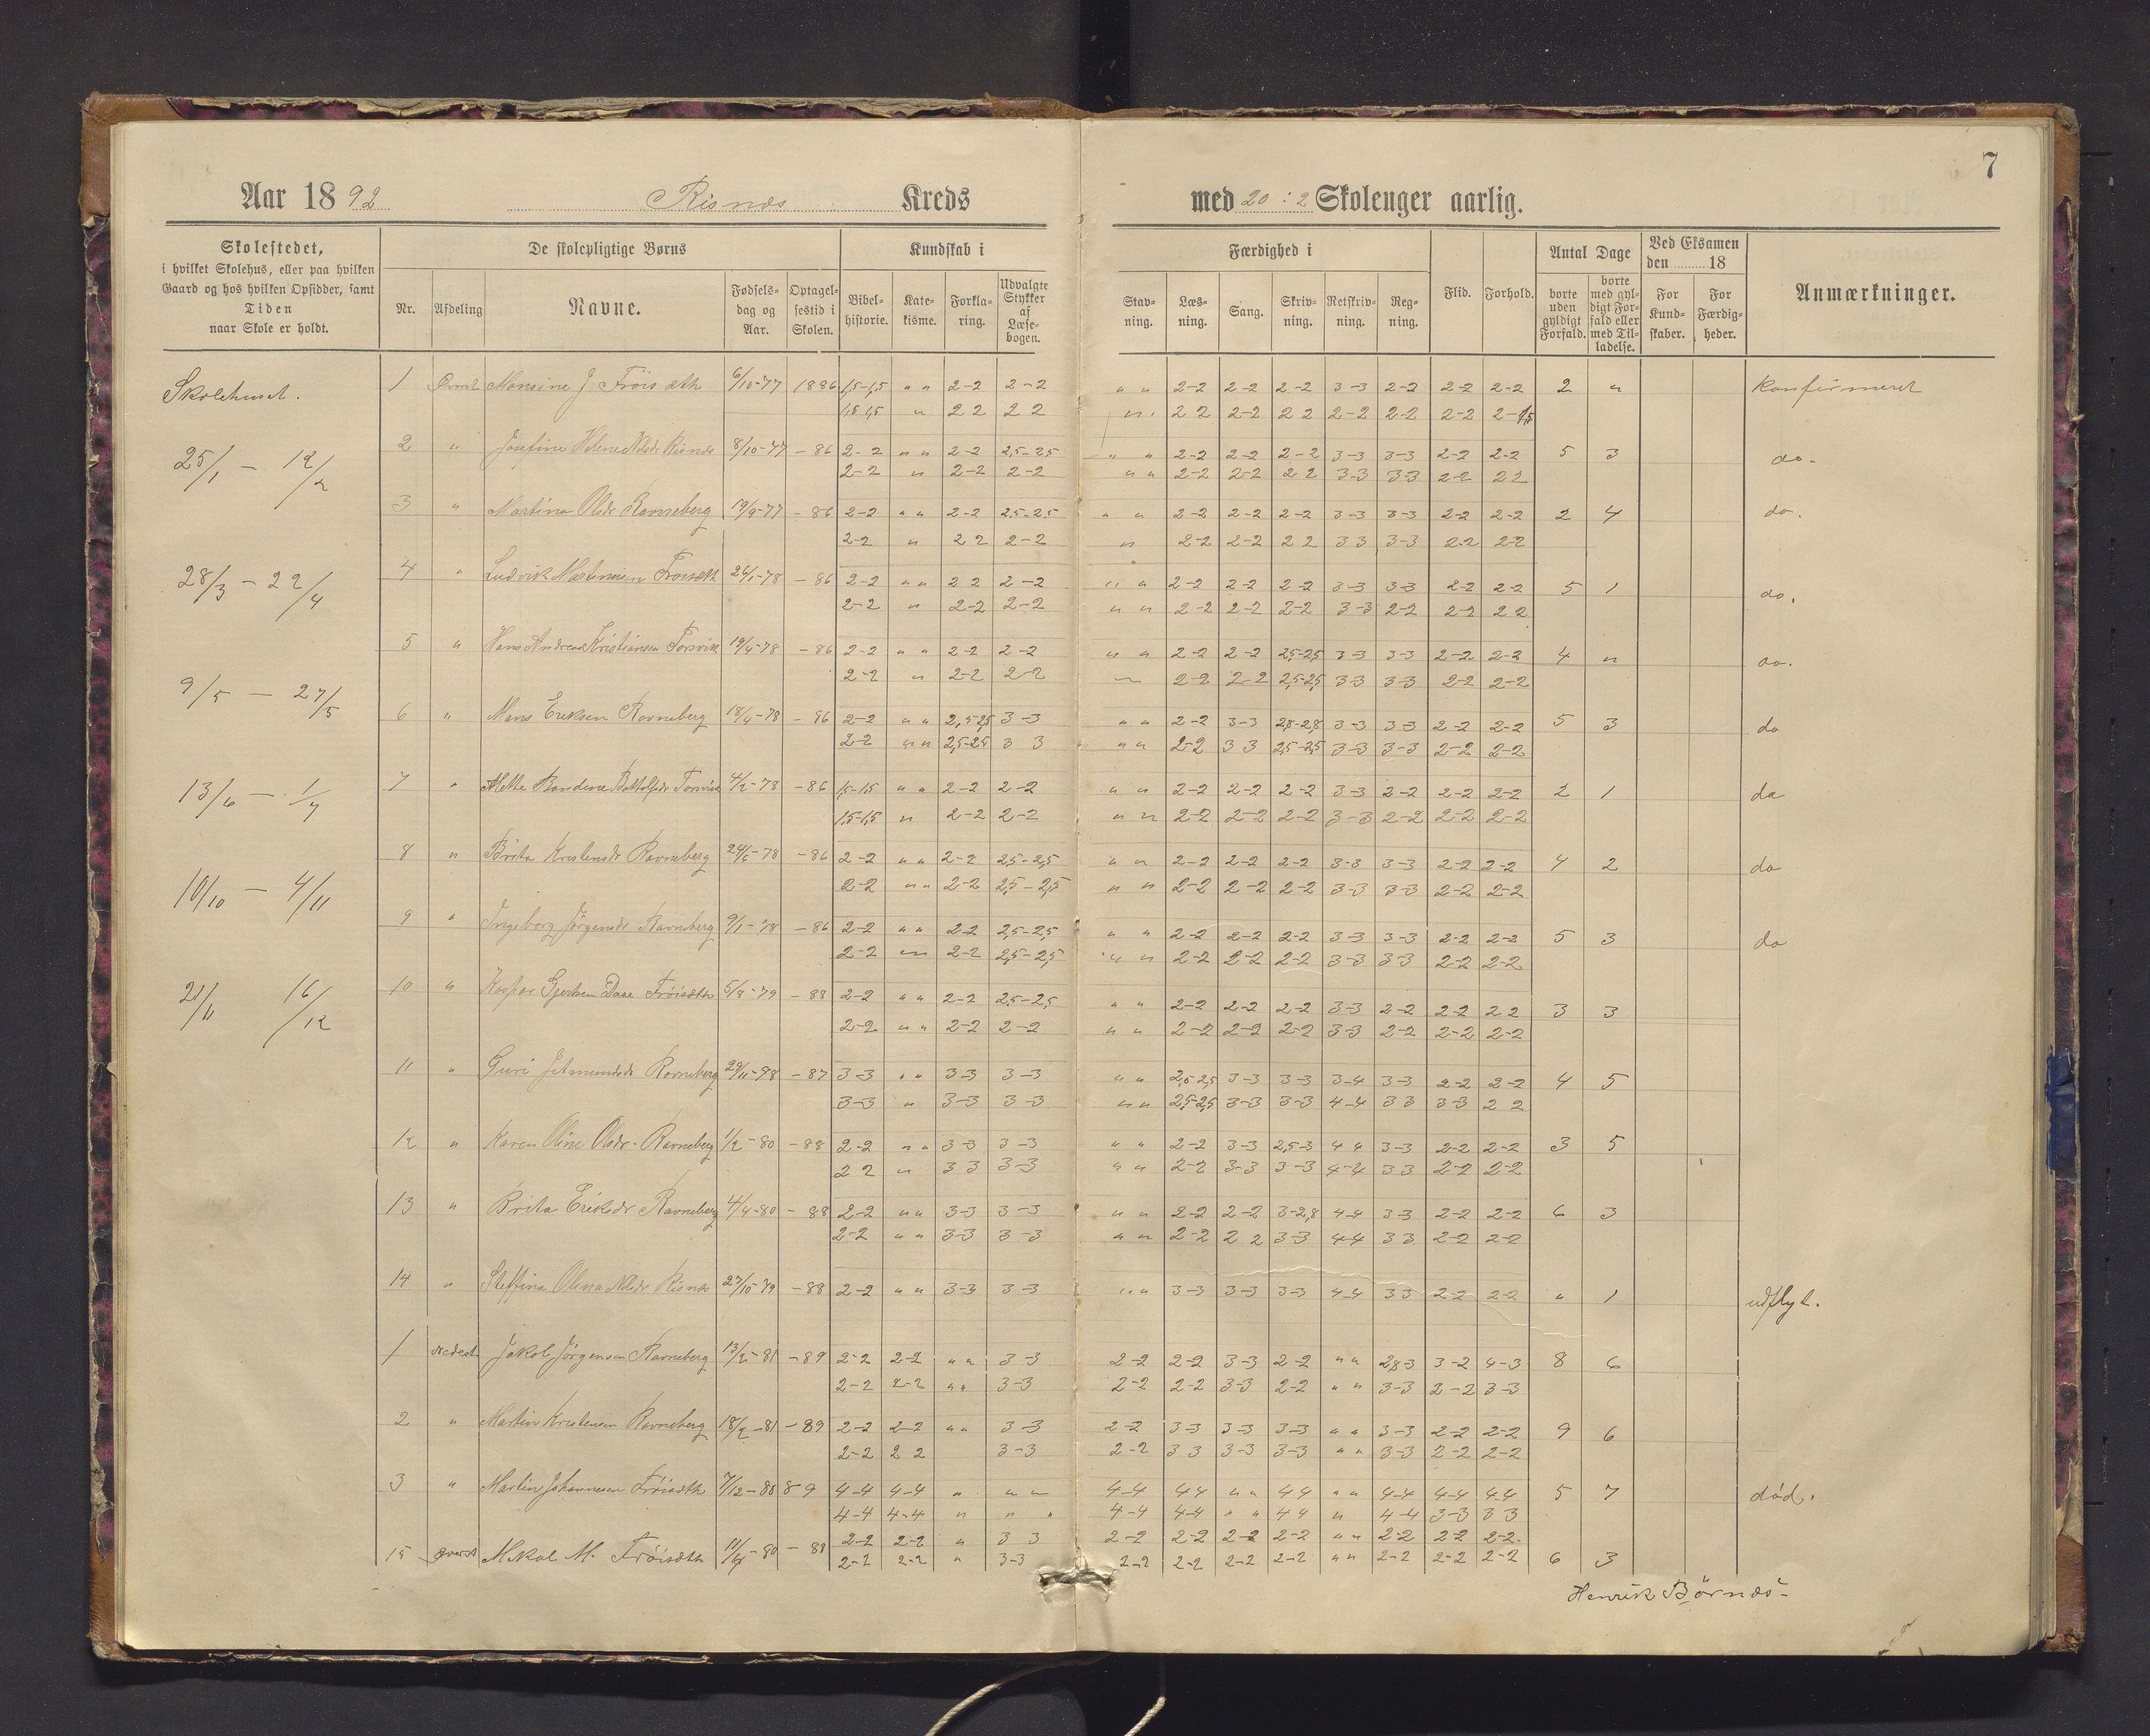 7
Aar 1892 Risnæs Kreds med 20 : 2 Skolenger aarlig.
Skolestedet, i hvilket Skolehus, eller paa hvilken Gaard og hos hvilken Opsidder, samt Tiden naar Skole er holdt.
De skolepligtige Børns
Nr. Afdeling Navne. Fødselsdag og Aar. Optagelsestid i Skolen.
Kundskab i
Bibelhistorie. Katekisme. Forklaring. Udvalgte Stykker af Læsebogen.
Færdighed i
Stavning. Læsning. Sang. Skrivning. Retskrivning. Regning.
Flid. Forhold.
Antal Dage
borte uden gyldigt Forfald. borte med gyldigt Forfald eller med Tilladelse.
Ved Eksamen den 18
For Kundskaber. For Færdigheder.
Anmærkninger.
Skolehuset.
25/1 – 12/2
28/3 – 22/4
9/5 – 27/5
13/6 – 1/7
10/10 – 4/11
21/11 16/12
1 Øverst Monsine J Fröisæth 6/10-77 1886 1,5-1,5 " " 2-2 2-2 " " 2-2 2-2 2-2 3-3 2-2 2-2 2-2 2 " konfirmeret
1,5 1,5 " 2 2 2 2 " 2 2 2-2 2 2 2-2 2-2 2-2 2-1,5
2 " Josefine Helene Nilsdr Risnæs 8/10-77 -86 2-2 " " 2-2 2,5-2,5 " " 2-2 2-2 2-2 3-3 3-3 2-2 2-2 5 3 do.
2-2 " 2-2 2-2 " " 2-2 2-2 2 2 3-3 3-3 2-2 2 2
3 " Martina Olsdr Ravneberg 19/9-77 -86 2-2 " " 2-2 2,5-2,5 " " 2-2 2-2 2-2 3-3 3-3 2-2 2-2 2 4 do.
2-2 " 2 2 2-2 " 2-2 2-2 2 2 3 3 3-3 2-2 2-2
4 " Ludvik Martinusen Froisæth 26/1-78 -86 2-2 " " 2 2 2-2 " " 2-2 2-2 2-2 3-3 3-3 2-2 2-2 5 1 do.
2-2 " 2-2 2-2 " " 2-2 2-2 2-2 3-3 2-2 2-2 2 2
5 " Hans Andreas Kristiansen Torsvik 19/4-78 -86 2-2 " " 2-2 2-2 " " 2-2 2-2 2,5-2,5 3-3 3-3 2-2 2-2 4 " do.
2-2 " 2-2 2-2 " 2-2 2-2 2,5-2,5 3-3 3-3 2-2 2-2
6 " Mons Eriksen Ravneberg 18/4-78 -86 2-2 " " 2,5-2,5 3-3 " " 2-2 3-3 2,8-2,8 3-3 3-3 2-2 2-2 5 3 do
2-2 " " 2,5-2,5 3 3 " " 2-2 3 3 2,5-2,5 3-3 3-3 2-2 2-2
7 " Mette Bondine Bottolfsdr Torsvik 4/2-78 -86 1,5-1,5 " " 2-2 2-2 " " 2-2 2-2 2-2 3-3 2-2 2-2 2-2 2 1 do
1,5-1,5 " 2-2 2-2 " " 2-2 2-2 2-2 3-3 2-2 2-2 2-2
8 " Brita Kristensdr Ravneberg 24/6-78 -86 2-2 " " 2-2 2,5-2,5 " " 2-2 2-2 2-2 3-3 3-3 2-2 2-2 4 2 do
2-2 " " 2-2 2,5-2,5 " " 2-2 2-2 2-2 3-3 3-3 2-2 2-2
9 " Ingeborg Jørgensdr Ravneberg 9/1-78 -86 2-2 " " 2-2 2,5-2,5 " " 2-2 2-2 2-2 3-3 3-3 2-2 2-2 5 3 do
2-2 " 2-2 2,5-2,5 " " 2-2 2-2 2-2 3-3 3-3 2-2 2-2
10 " Kaspar Gjertsen Daae Fröisæth 5/8-79 -88 2-2 " " 2-2 2,5-2,5 " " 2-2 2-2 2-2 3-3 2-2 2-2 2 2 3 3
2-2 " " 2-2 2-2 " " 2-2 2-2 2-2 3-3 2-2 2-2 2-2
11 " Guri Jetmundsdr Ravneberg 29/11-78 -87 3-3 " " 3-3 3-3 " " 2,5-2,5 3-3 3-3 3-4 3-3 2-2 2-2 4 5
3-3 " 3-3 3-3 " " 2,5-2,5 3-3 3-3 4-4 3 3 3-3 2 2
12 " Karen Oline Olsdr. Ravneberg 1/2-80 -88 2-2 " " 3-3 3-3 " " 2-2 3-3 2,5-3 4 4 3-3 2-2 2-2 3 5
2 2 " 3 3 3-3 " " 2-2 3-3 3-3 4-4 3 3 2-2 2-2
13 " Brita Eriksdr Ravneberg 4/4-80 -88 2-2 " " 3-3 3-3 " " 2-2 2-2 3-2,8 4-4 3-3 2-2 2-2 6 3
2-2 " " 3-3 3-3 " " 2-2 2 2 3-3 4-4 3 3 2-2 2-2
14 " Steffina Olena Nilsdr Risnæs 27/10-79 -88 2-2 " " 3-3 3-3 " " 3-3 3-3 3-3 4-4 3 3 2-2 2-2 " 1 udflyt.
1 Nederst Jakob Jörgensen Ravneberg 13/2-81 -89 2-2 2-2 " " 3-3 2-2 2-2 3-3 2-2 " " 2,8-3 3-2 4-3 8 6
2-2 2-2 " " 3-3 2-2 2-2 3-3 2-2 " " 3-3 2-2 3-3
2 " Martin Kristensen Ravneberg 18/2-81 -89 2-2 2-2 " " 3-3 2-2 3-3 3-3 3-3 " " 3-3 2-2 2-2 9 6
2-2 2 2 3-3 2-2 3 3 3-3 3-3 " " 3-3 2-2 2-2
3 " Martin Johannesen Fröisæth 7/12-80 89 4-4 4-4 " " " 4-4 4 4 " " 4 4 " " 4-4 4-4 4-4 5 7 död.
4-4 4-4 " " " 4-4 4-4 " " 4 4 " 4-4 3-3 3 3
2-2 2-2 " 3 3 2-2 2-2 2-2 2-2 " " 2-2 2-2 2-2
15 øverst Mikal M. Fröisæth -80 -88 2-2 2-2 " 3-3 2-2 2-2 2-2 2-2 " " 2-2 2-2 2-2 6 3
Henrik Börnæs